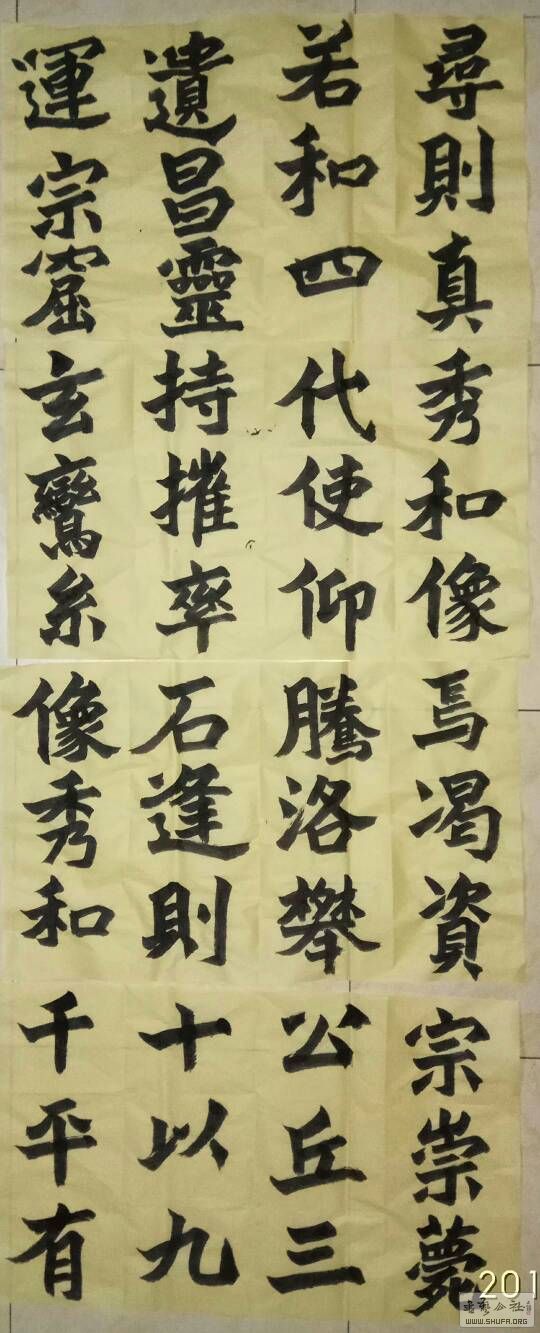 尋則真
若和四
遺昌靈
運宗窟
秀和像
代使仰
持摧率
玄鸞糸
焉渴資
騰洛攀
石逢則
像秀和
宗崇薨
公丘三
十以九
千平有
201
书艺公社
WWW.SHUFA.ORG